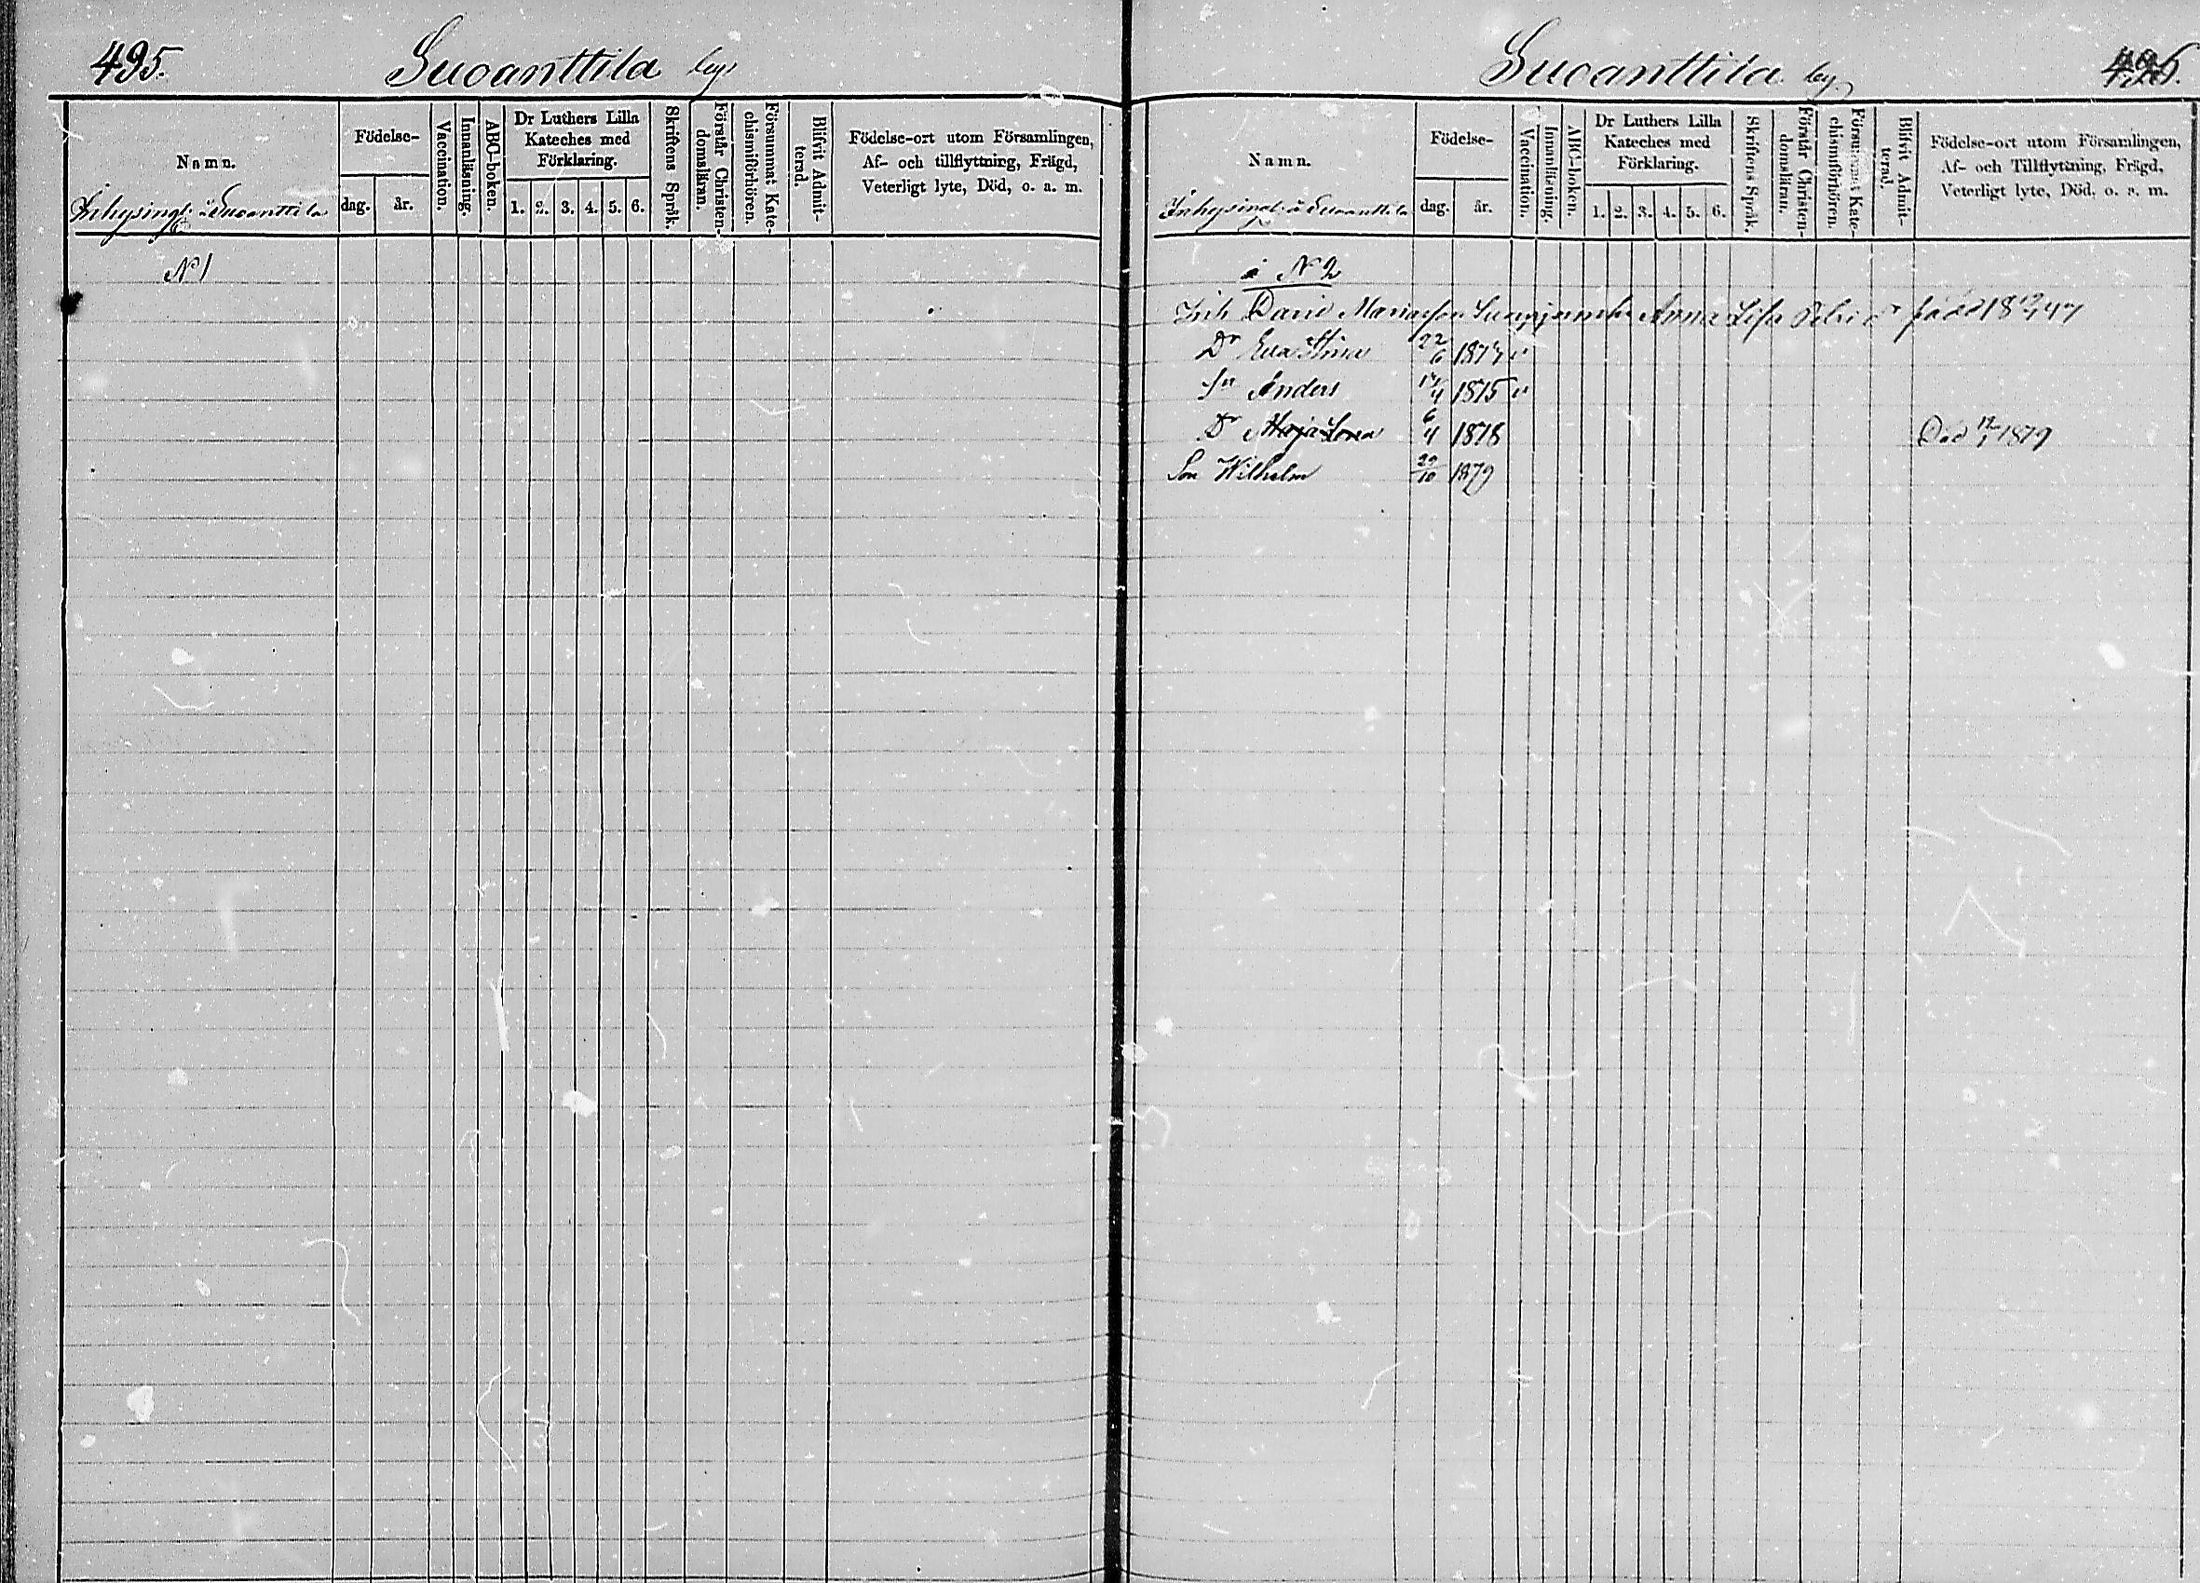 495.
Suoanttila by.
Namn.
Inhysingl. å Suoanttila
Födelse-
dag.
år.
Vaccination.
Innanläsning.
ABC-boken.
Dr Luthers Lilla
Kateches med
Förklaring.
1. 2. 3. 4. 5. 6.
Skriftens Språk.
Förstår Christen-
domsläran.
Försummat Kate-
chismiförhören.
Blifvit Admit-
terad.
Födelse-ort utom Församlingen,
Af- och tillflyttning, Frägd,
Veterligt lyte, Död, o. a. m.
N 1
Suoanttila by
Namn.
Inhysingl. å Suoanttila
Födelse-
dag.
år.
Vaccination.
Innanläsning.
ABC-boken.
Dr Luthers Lilla
Kateches med
Förklaring.
1. 2. 3. 4. 5. 6.
Skriftens Språk.
Förstår Christen-
domsläran.
Försummat Kate-
chismiförhören.
Blifvit Admit-
terad.
Födelse-ort utom Församlingen,
Af- och Tillflyttning, Frägd,
Veterligt lyte, Död, o. a. m.
i N 2
Inh David Mariasson Anna Lisa född
Dr Eva Stina 22/6
Sn Anders 1875 v
Dr Maja Lena 6/4 1878 Död 1879
Son Wilhelm 29/10 1879